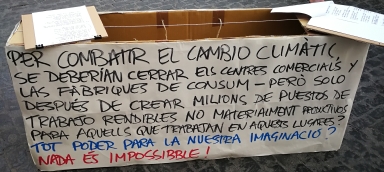 PER COMBATIR EL CAMBIO CLIMÀTIC
SE DEBERÍAN CERRAR ELS CENTRES COMERCIALS Y
LAS FÀBRIQUES DE CONSUM - PERÒ SOLO
DESPUÉS DE CREAR MILIONS DE PUESTOS DE
TRABAJO RENDIBLES NO MATERIALMENT PRODUCTIVOS
PARA AQUELLS QUE TREBAJAN EN AQUESTS LUGARES?
TOT PODER PARA LA NUESTRA IMAGINACIÓ?
NADA ÉS IMPOSSIBBLE!